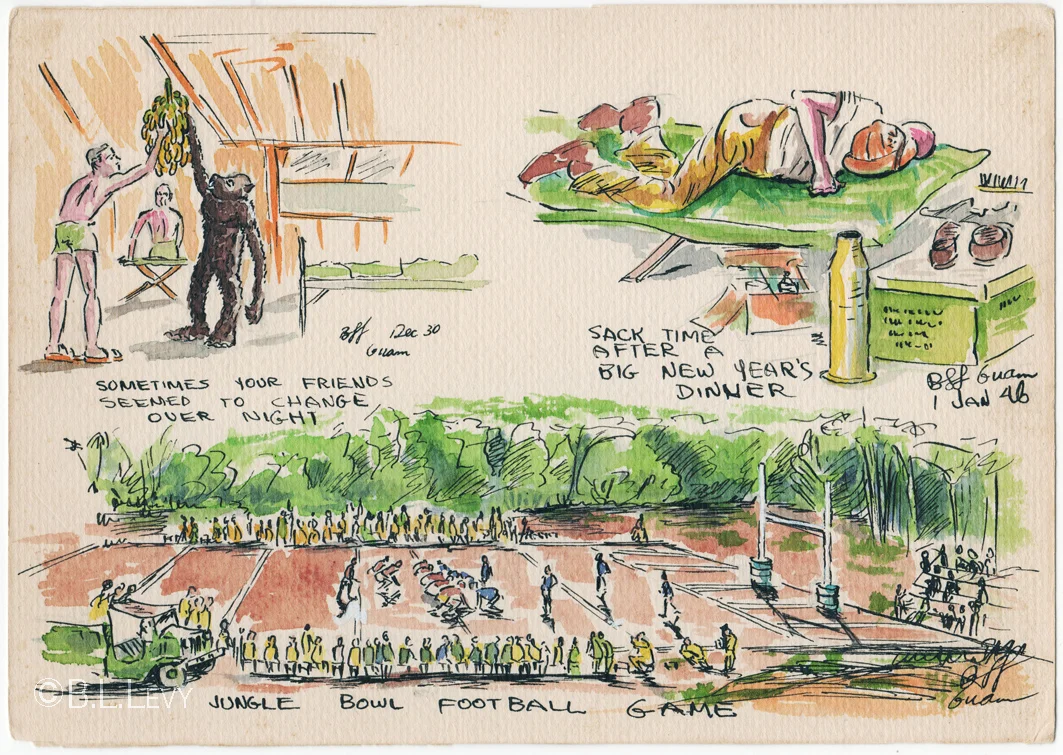 Dec 30
Guam
SOMETIMES YOUR FRIENDS
SEEMED TO CHANGE
OVER NIGHT
SACK TIME
AFTER A
BIG NEW YEAR'S
DINNER
Guam
1 JAN 46
Guam
©B.L.LEVY
JUNGLE BOWL FOOTBALL GAME